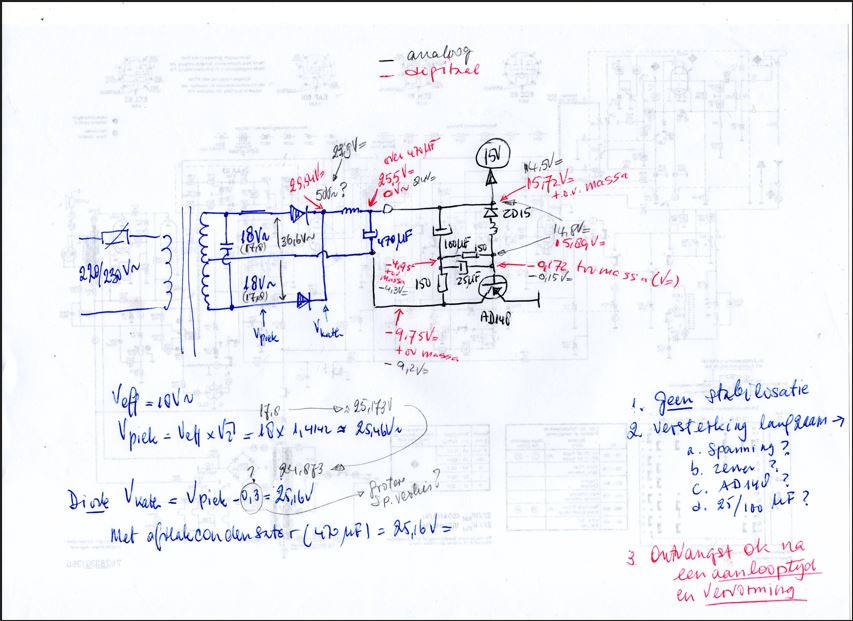 — analoog
— digitaal
27,8V=
25,94V=
50V~?
over 470µF
25,5V=
0V~
15V
14,5V=
15,72V=
t.o.v. massa
ZD15
14,8V=
15,89V=
220/230V~
18V~
(17,8)
36,6V~
18V~
(17,8)
470µF
100µF
150
25µF
150
tov
massa
-4,3V=
-0,172 tov massa (V=)
-0,15V=
AD148
Vpiek
Vkath
-9,75V=
tov massa
-9,2V=
Veff = 18V~
17,8
≈ 25,173V
Vpiek = Veff x √2 = 18 x 1,4142 ≈ 25,46V~
?
24,873
Diode Vkath = Vpiek - 0,3 = 25,16V
Grotere
sp. verlies?
Met afvlakcondensator (470µF) = 25,16V=
1. Geen stabilisatie
2. Versterking langzaam →
a. Spanning?
b. zener?
c. AD148?
d. 25/100 µF?
3. Ontvangst ok na
een aanlooptijd
en vervorming